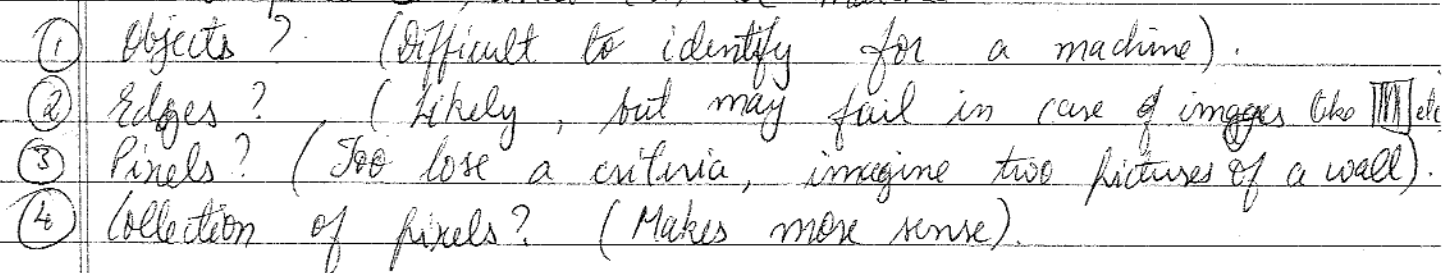 ① Objects? (Difficult to identify for a machine).
② Edges? (Likely, but may fail in case of images like etc
③ Pixels? (Too lose a criteria, imagine two pictures of a wall).
④ Collection of pixels? (Makes more sense).